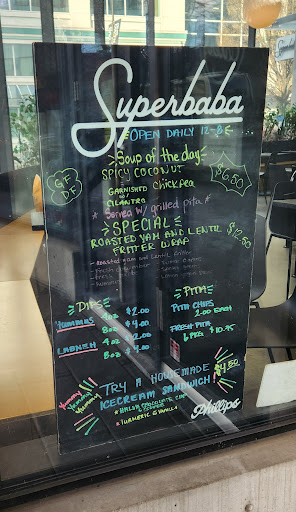 Superbaba
OPEN DAILY 12-8
Soup of the day
SPICY COCONUT
chickpea
GF
DF
$6.50
GARNISHED W/
CILANTRO
* Served w/ grilled pita *
SPECIAL
ROASTED YAM AND LENTIL
FRITTER WRAP
$12.50
- Roasted Yam and Lentil fritter
DIPS
HUMMUS 4oz $2.00
8oz $4.00
LABNEH 4oz $2.00
8oz $4.00
PITA
PITA CHIPS
2.00 EACH
FRESH PITA
6 PKG $10.45
Yummy
Yummy
Yummy
TRY A HOMEMADE
ICECREAM SANDWICH!
$4.50
* HALVA CHOCOLATE CHIP
* TURMERIC & VANILLA
Phillips